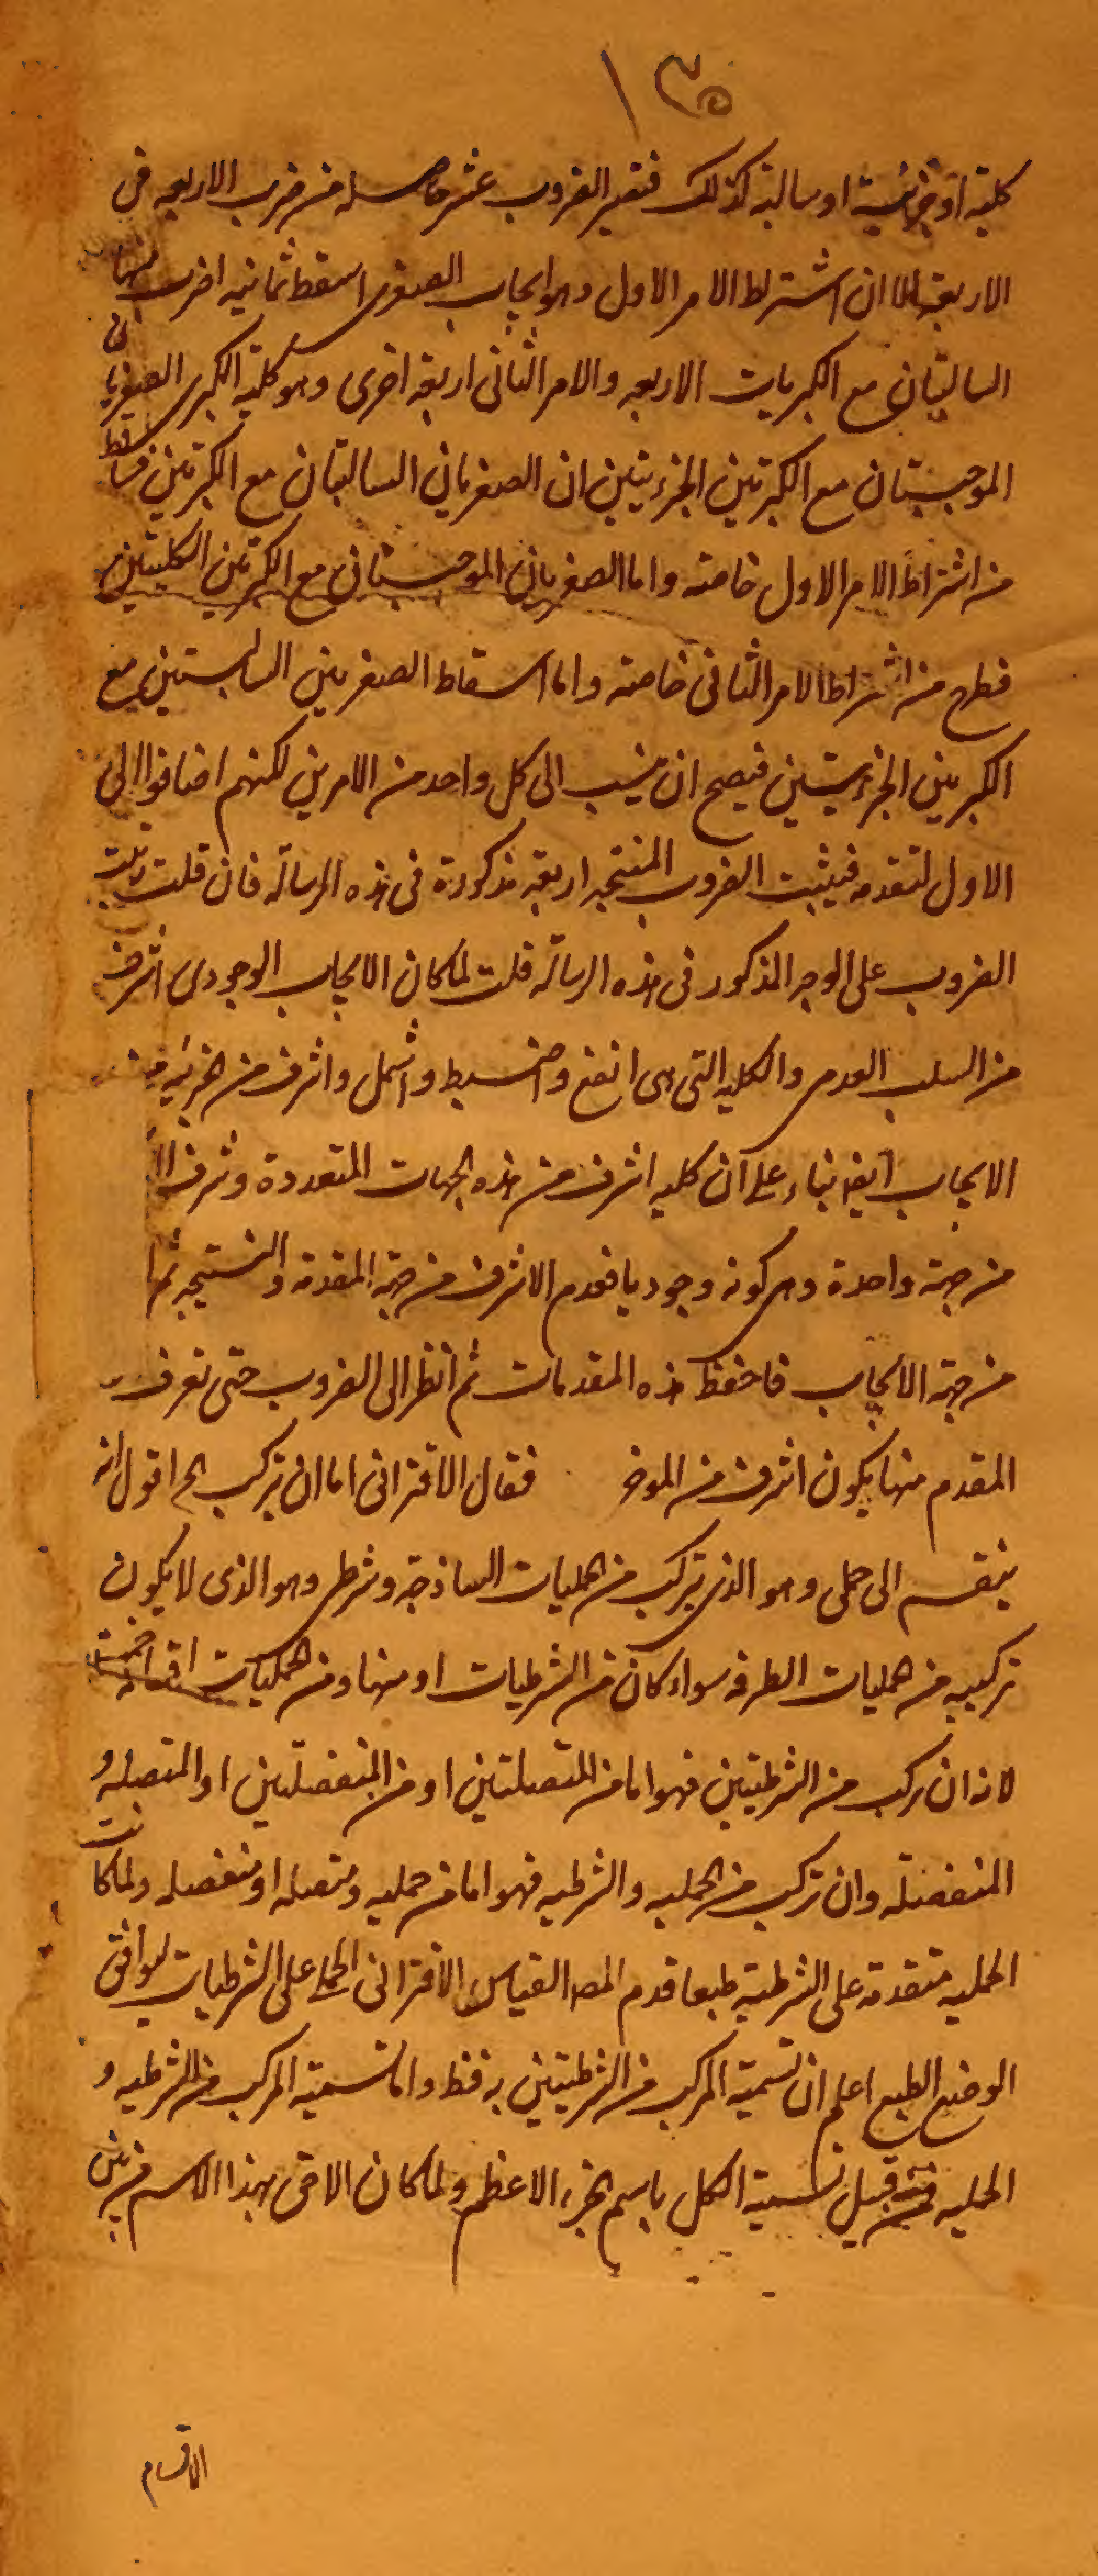 ١٣٥
كلية او جزئية او سالبة كذلك فتصير الضروب ستة عشر حاصله من ضرب الاربعه فى
الاربعة الا ان اشتراط الامر الاول وهو ايجاب الصغرى اسقط ثمانيه اضرب
السالبتان مع الكبريات الاربعه والامر الثانى اربعة اخرى وهو كلية الكبرى الصغريان
الموجبتان مع الكبريين الجزئيتين ان الصغريان السالبتان مع الكبريين فساقط
من اشتراط الامر الاول خاصته واما الصغريان الموجبتان مع الكبريين الكليتين
فطرح من اشتراط الامر الثانى خاصته واما اسقاط الصغريين السالبتين مع
الكبريين الجزئيتين فيصح ان ينسب الى كل واحد من الامرين لكنهم اضافوا الى
الاول لتقدمه فيثبت الضروب المنتجه اربعة مذكورة فى هذه الرسالة فان قلت رتبت
الضروب على الوجه المذكور فى هذه الرسالة قلت لما كان الايجاب الوجودى اشرف
من السلب العدمى والكليه التى هى انفع واضبط واشمل واشرف من الجزئيه
الايجاب ايضا بناء على ان كليه اشرف من هذه الجهات المتعددة وشرف
من جهة واحدة وهى كونه وجوديا فقدم الاشرف من جهة المقدمة والنتيجه
من جهة الايجاب فاحفظ هذه المقدمات ثم انظر الى الضروب حتى تعرف
المقدم منها يكون اشرف من الموخر فقال الاقترانى اما ان يتركب الخ اقول انه
ينقسم الى حملى وهو الذى يتركب من الحمليات الساذجة وشرطى وهو الذى لا يكون
تركيبه من حمليات الصرفه سواء كان من الشرطيات او منها ومن الحمليات اقسامه خمسة
لانه ان تركب من الشرطيتين فهو اما من المتصلتين او من المنفصلتين او المتصله و
المنفصلة وان تركب من الحمليه والشرطيه فهو اما من حمليه ومتصله او منفصله ولما كانت
الحمليه متقدمة على الشرطية طبعا قدم المصـ القياس الاقترانى الحملى على الشرطيات ليوافق
الوضع الطبع اعلم ان تسمية المركب من الشرطيتين به فقط واما تسمية المركب من الشرطيه و
الحمليه فمن قبيل تسمية الكل باسم الجزء الاعظم ولما كان الاحق بهذا الاسم من بين
الاقسام